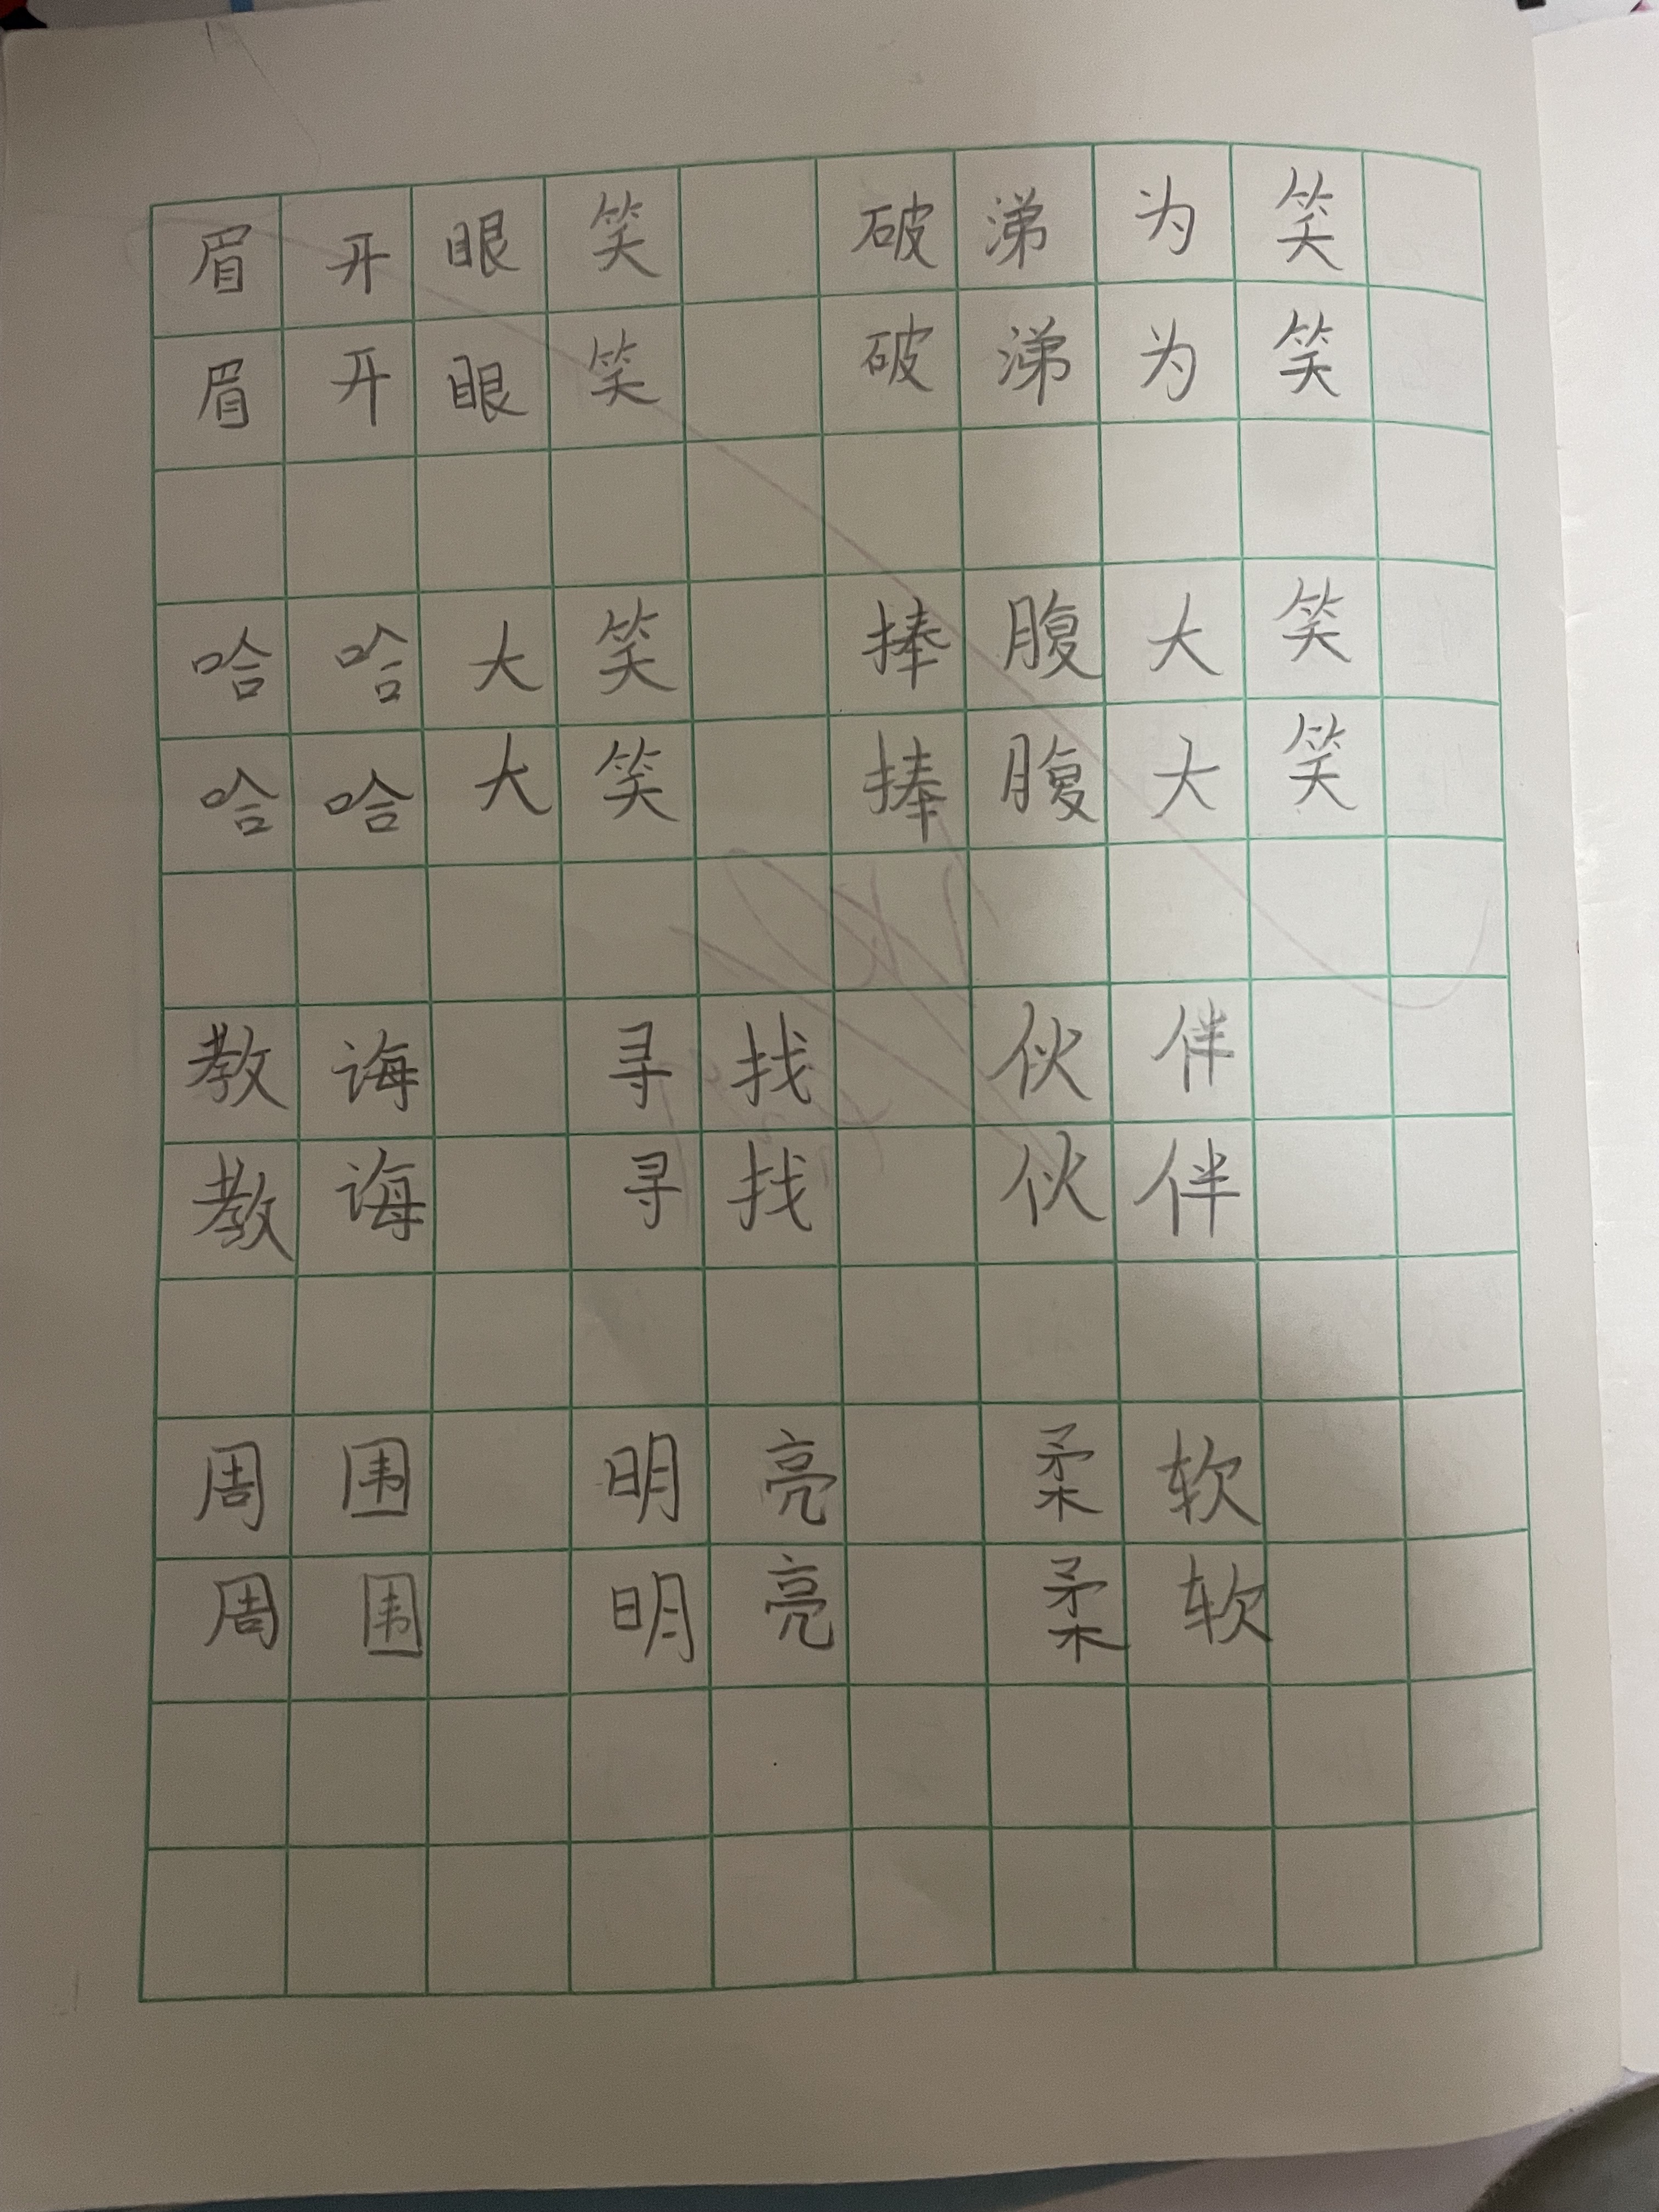 眉开眼笑 破涕为笑
眉开眼笑 破涕为笑
哈哈大笑 捧腹大笑
哈哈大笑 捧腹大笑
教诲 寻找 伙伴
教诲 寻找 伙伴
周围 明亮 柔软
周围 明亮 柔软